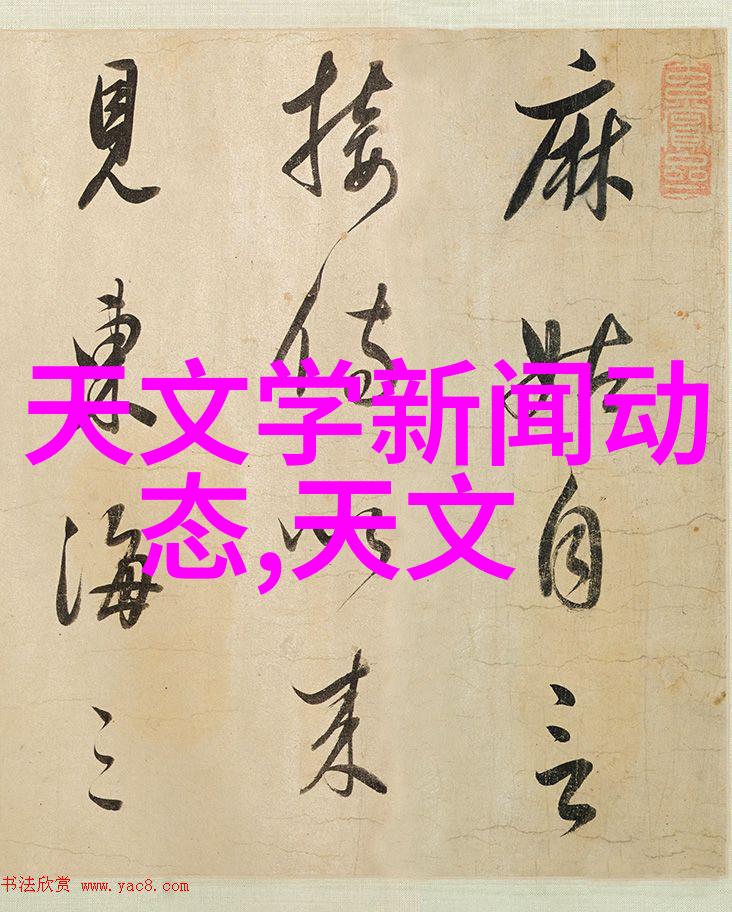 麻姑自言
接侍以来
見東海三
天文学新闻动
态,天文
书法欣赏 www.yac8.com